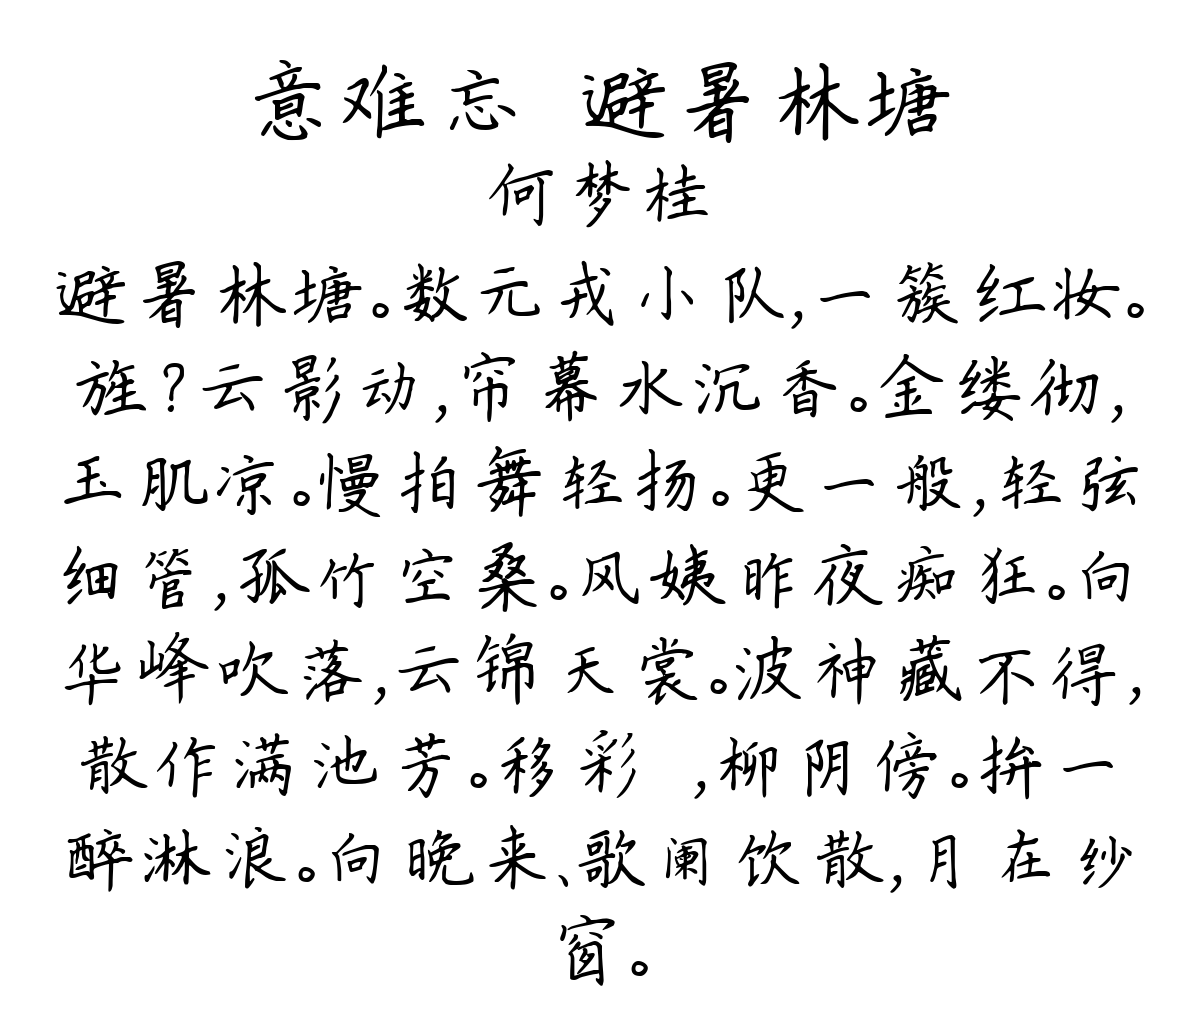 意难忘 避暑林塘
何梦桂
避暑林塘。数元戎小队,一簇红妆。
旌?云影动,帘幕水沉香。金缕彻,
玉肌凉。慢拍舞轻扬。更一般,轻弦
细管,孤竹空桑。风姨昨夜痴狂。向
华峰吹落,云锦天裳。波神藏不得,
散作满池芳。移彩 ,柳阴傍。拚一
醉淋浪。向晚来、歌阑饮散,月在纱
窗。